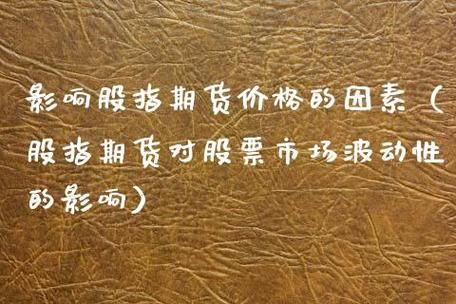 影响股指期货价格的因素（
股指期货对股票市场波动性
的影响）